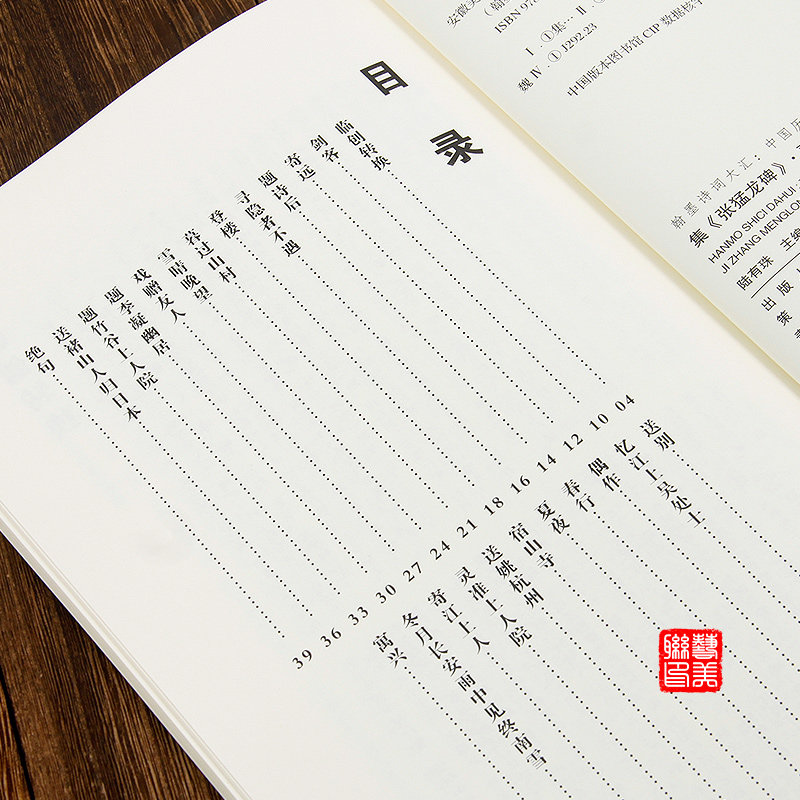 目录
临创转换 04
剑客 10
寄远 12
题诗后 14
寻隐者不遇 16
登楼 18
暮过山村 21
雪晴晚望 24
戏赠友人 27
题李凝幽居 30
题竹谷上人院 33
送褚山人归日本 36
绝句 39
送别
忆江上吴处士
偶作
春行
夏夜
宿山寺
送姚杭州
灵准上人院
寄江上人
冬月长安雨中见终南雪
寓兴
安徽美
ISBN 978
Ⅰ.①集…Ⅱ.
魏Ⅳ.①J292.23
中国版本图书馆CIP数据核字
翰墨诗词大汇：中国历
集《张猛龙碑》·
HANMO SHICI DAHUI
JI ZHANG MENGLON
陆有珠 主编
出版
策
藝美
聯印